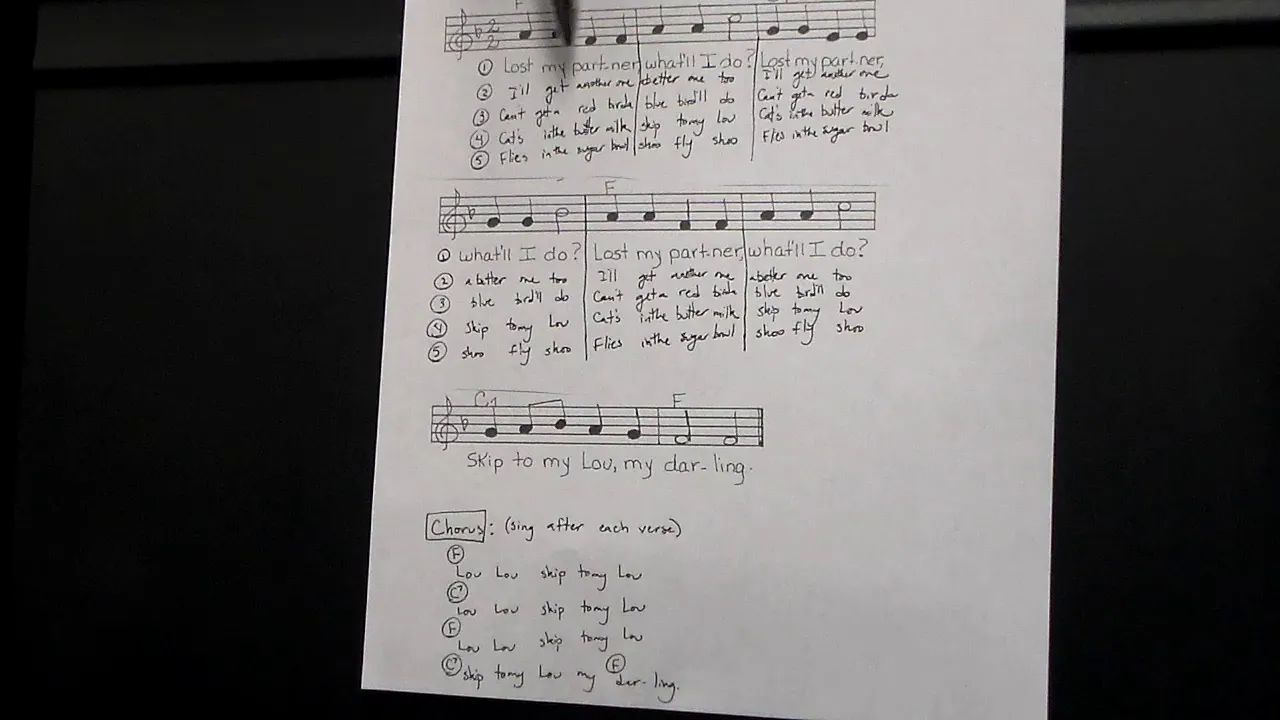 F
2 2
① Lost my part-ner, what'll I do? Lost my part-ner,
② I'll get another one a better one too I'll get another one
③ Can't get a red birdie blue bird'll do Can't get a red birdie
④ Cat's in the butter milk skip to my Lou Cat's in the butter milk
⑤ Flies in the sugar bowl shoo fly shoo Flies in the sugar bowl
F
① what'll I do? Lost my part-ner, what'll I do?
② a better one too I'll get another one a better one too
③ blue bird'll do Can't get a red birdie blue bird'll do
④ skip to my Lou Cat's in the butter milk skip to my Lou
⑤ shoo fly shoo Flies in the sugar bowl shoo fly shoo
C7 F
Skip to my Lou, my dar-ling.
Chorus: (sing after each verse)
F
Lou Lou skip to my Lou
C7
Lou Lou skip to my Lou
F
Lou Lou skip to my Lou
C7 F
skip to my Lou my dar-ling.